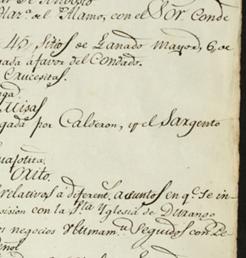 del Alamo, con el Sor Conde
45 Sitios de Ganado Mayor, 6 de
gada á favor del Condado.
Caucesitas.
nga.
uisas
gada por Calderon, y el Sargento
uasotita.
Orito.
relativos á diferent. asuntos en q.e se in-
sision con la S.ta Yglesia de Durango
s negocios seguidos con